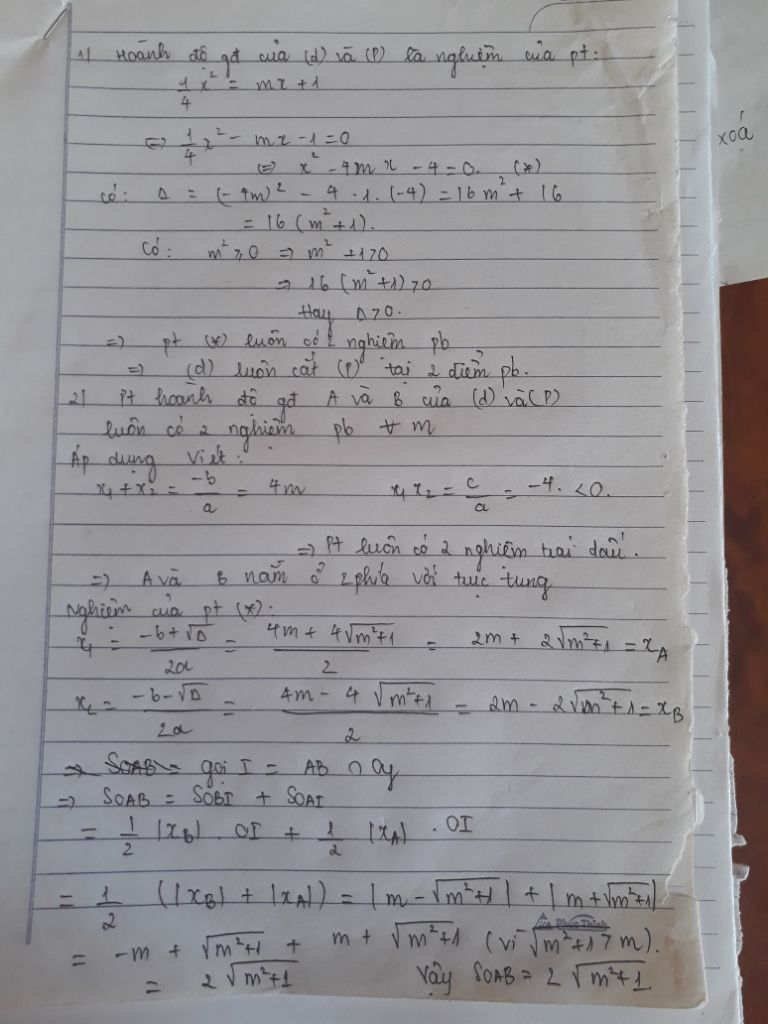 1) Hoành độ gđ của (d) và (P) là nghiệm của pt:
1/4 x² = mx + 1
⇔ 1/4 x² - mx - 1 = 0
⇔ x² - 4mx - 4 = 0. (*)
Có: Δ = (-4m)² - 4 · 1. (-4) = 16m² + 16
= 16 (m² + 1).
Có: m² ≥ 0 ⇒ m² + 1 > 0
⇒ 16 (m² + 1) > 0
Hay Δ > 0.
⇒ pt (*) luôn có 2 nghiệm pb
⇒ (d) luôn cắt (P) tại 2 điểm pb.
2) Pt hoành độ gđ A và B của (d) và (P)
luôn có 2 nghiệm pb ∀ m
Áp dụng Viét:
x₁ + x₂ = -b/a = 4m x₁ x₂ = c/a = -4. < 0.
⇒ Pt luôn có 2 nghiệm trái dấu.
⇒ A và B nằm ở 2 phía với trục tung
Nghiệm của pt (*):
x₁ = (-b + √Δ)/2a = (4m + 4√(m²+1))/2 = 2m + 2√(m²+1) = x_A
x₂ = (-b - √Δ)/2a = (4m - 4√(m²+1))/2 = 2m - 2√(m²+1) = x_B
⇒ SOAB = gọi I = AB ∩ Oy
⇒ SOAB = SOBI + SOAI
= 1/2 |x_B| . OI + 1/2 |x_A| . OI
= 1/2 (|x_B| + |x_A|) = |m - √(m²+1)| + |m + √(m²+1)|
= -m + √(m²+1) + m + √(m²+1) (vì √(m²+1) > m).
= 2√(m²+1) Vậy SOAB = 2√(m²+1)
xoá
Phúc Thịnh